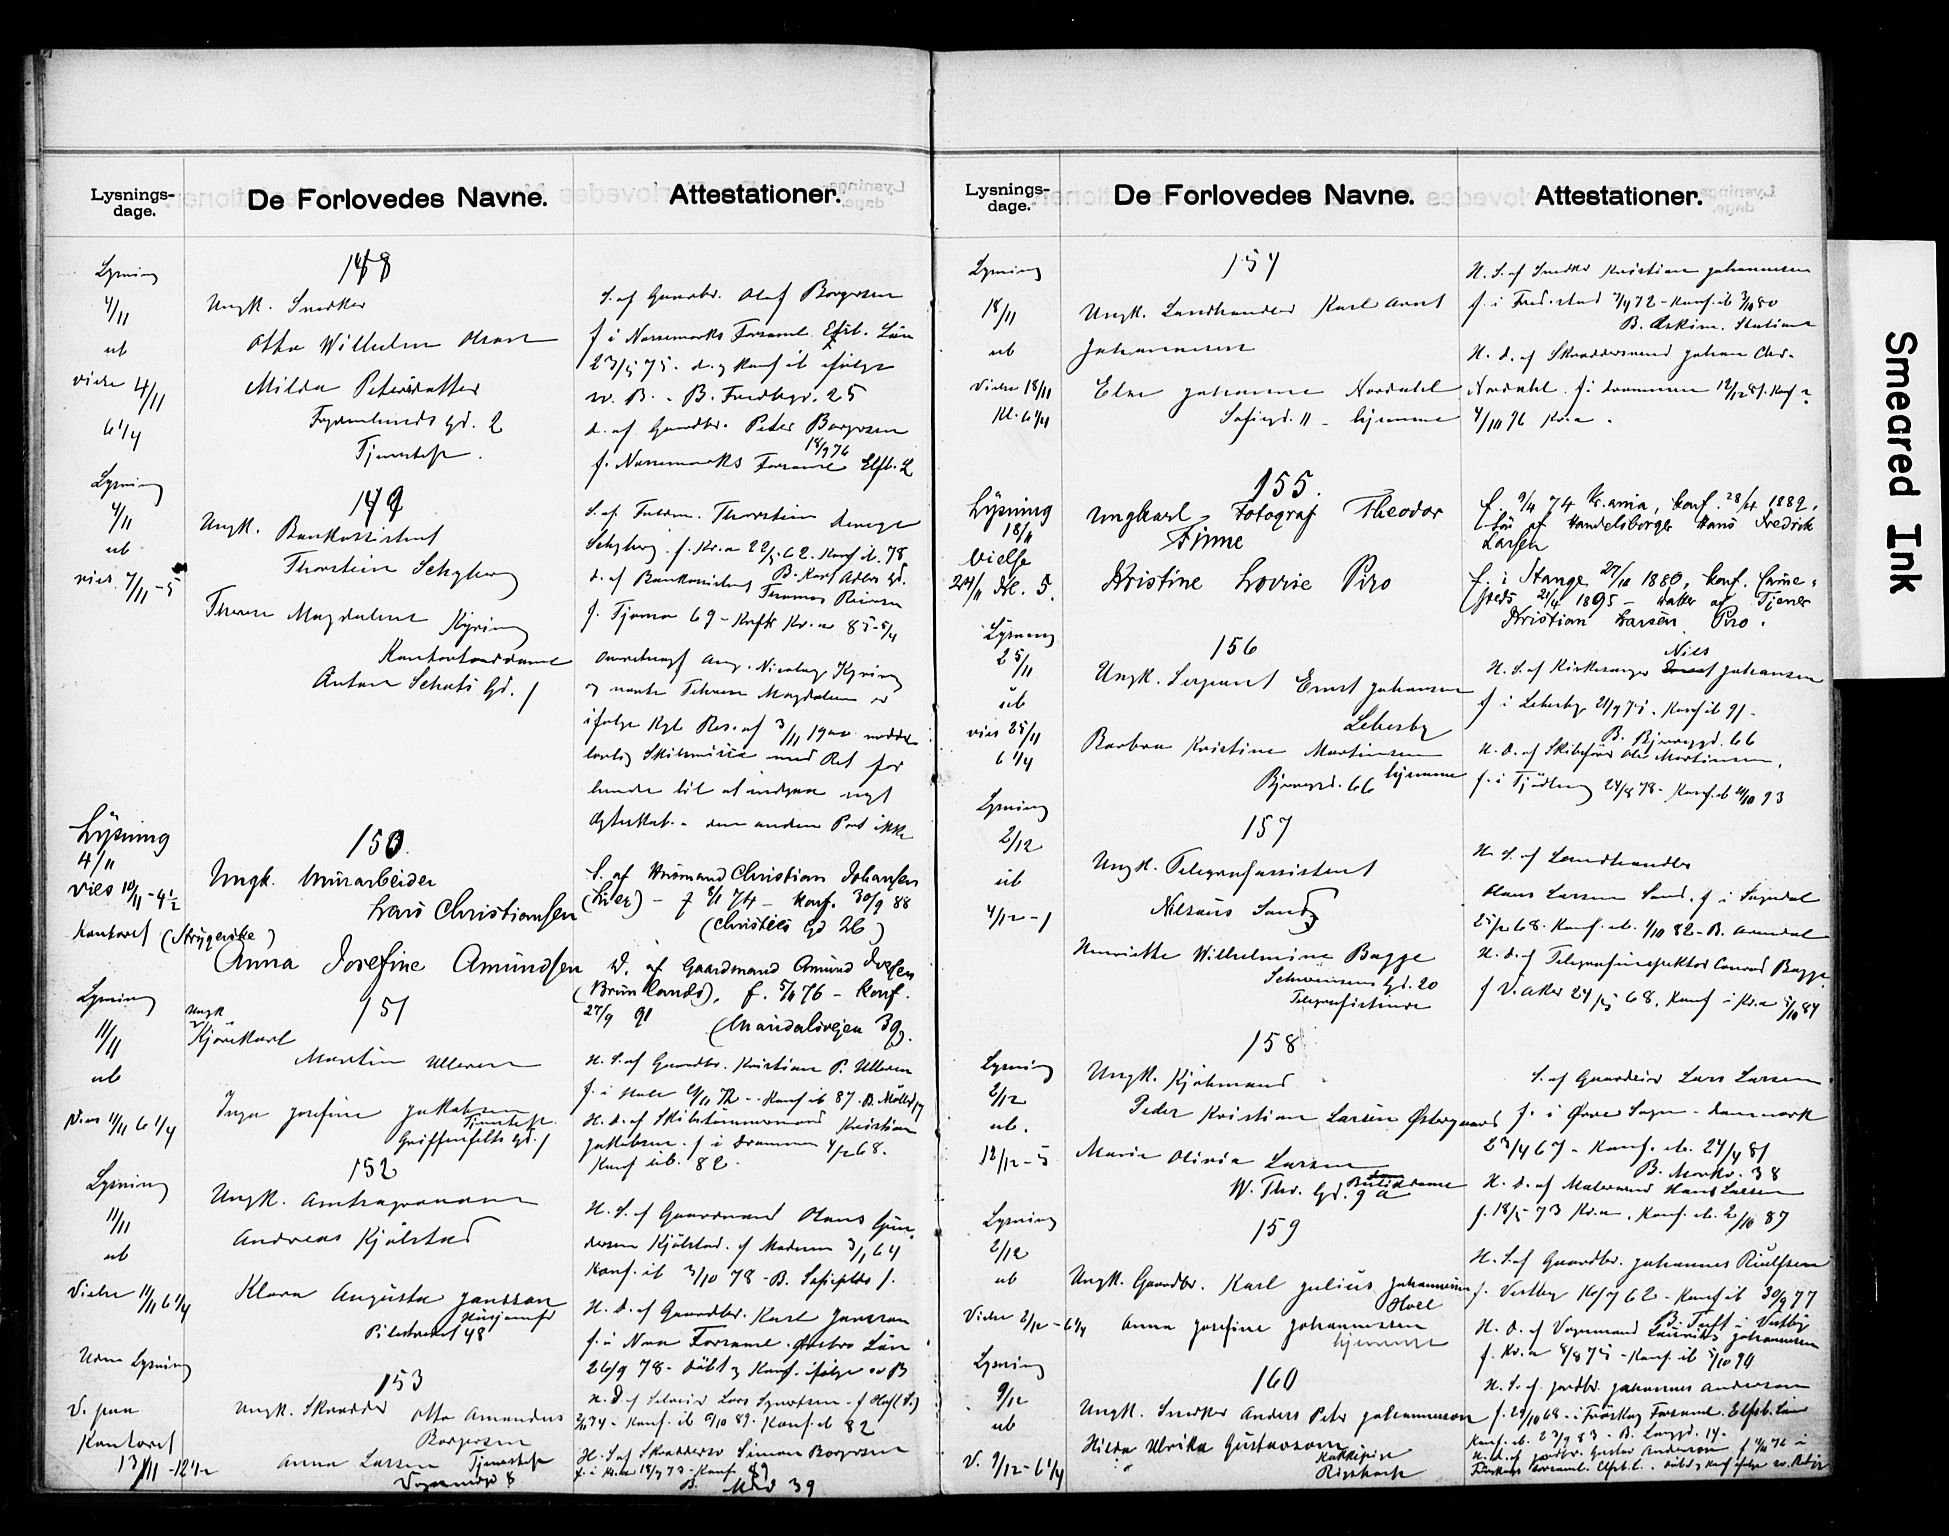 Lysnings-
dage.
De Forlovedes Navne.
Attestationer.
Lysning
4/11
ub
Vielse 4/11
6 1/4
148
Ungk. Snedker
Otto Wilhelm Olsson
Milda Petersdatter
Gd. 2
Tjeneste
S. af Gaardbr. Olaf Borgersen
f i Nossemarks Forsaml. Elfsb. Län
23/5 75. og Konf ib ifølge
sv. B. - B. Fredbgv. 25
d. af Gaardbr. Peter Borgersen
18/9 76
f. Nossemarks Forsaml Elfb. L
Lysning
4/11
ub
vies 7/11 - 5
149
Ungk. Bankassistent
Thorstein Schyberg
Therese Magdalene Kyring
Kontordame
Anton Schøts Gd. 1
S. af Thorstein
Schyberg. f. Kr.a 22/5 62. Konf ib. 78
B. Kort Adlers Gd.
d. af Bankassistent Thomas
f. Tjømø 69 - Konf Kr.a 85 - 5/4
Aug. Nicolay Kyring
og Therese Magdalene er
ifølge Kgl Res. af 3/11 1900 meddelt
Skilsmisse med Ret for
hende til at indgaa nyt
Ægteskab. - den anden Part ikke
Lysning
4/11
vies 10/11 - 4 1/2
Kontoret
150.
Ungk. Murarbeider
Lars Christiansen
(Strygerske)
Anna Josefine Amundsen
S. af Husmand Christian Johansen
(Lier) - f 8/1 74 - konf. 30/9 88
(Christies Gd 26)
D. af Gaardmand Amund Iversen
(Brunlands), f. 5/11 76 - konf.
27/9 91
(Maridalsvejen 39).
Lysning
11/11
ub
Vies 11/11 6 1/4
151
Ungk
Kjørekarl
Martin Ulleren
Inga Josefine Jakobsen
Tjeneste
Griffenfelts Gd. 1
H. S. af Gaardbr. Kristian P. Ulleren
f. i Hole 6/11 72 - Konf ib 87. B.
H. D. af Skibstømmermand Kristian
Jakobsen. f i Drammen 4/12 68.
Konf ib. 82.
Lysning
11/11
ub
Vielse 11/11 6 1/4
152
Ungk. Amtsagronom
Andreas Kjølstad
Klara Augusta Jansson
Husjomfr
Pilestrædet 48
H. S. af Gaardmand Hans Gun-
dersen Kjølstad. f Modum 3/1 64
Konf. ib 3/10 78 - B. Sofieplds 1.
H. D. af Gaardbr. Karl Jansson
f. i Nora Forsaml. Ørebro Län
26/9 78 - Döbt og Konf. ifølge sv B
Uden Lysning
V. paa
Kontoret
13/11 - 12 1/2
153
Ungk. Skrædder Otto Amandus
Borgersen
Anna Larsen Tjeneste
Vognmdgd 8
H. D. af Lars - f Hof
74 - Konf. ib 6/10 89. Konf. ib 82
H. S. af Skræddersv Simon Borgersen
f. i Kr.a 18/9 73 - Konf. 89
B. 39
Lysnings-
dage.
De Forlovedes Navne.
Attestationer.
Lysning
18/11
ub
Vielse 18/11
Kl. 6 1/4
154
Ungk. Landhandler Karl Arnt
Johannesen
Else Johanne Nordahl
Sofiegd. 11 - hjemme
H. S. af Snedker Kristian Johannesen
f. i Fredrstad 7/4 72 - Konf. ib 3/10 80
B. Askim Station
H. D. af Skræddersvend Johan Chr.
Nordahl. f. i Drammen 12/12
4/10 76 Kr.a.
Lysning
18/11
Vielse
24/11 Kl. 5.
155.
Ungkarl, Fotograf Theodor
Finne
Kristine Lovise Piro
f. 9/4 74 Kr.ania, konf. 28/4 1889,
Søn af Handelsborger Hans Fredrik
Larsen
f. i Stange 27/10 1880, konf.
21/4 1895 - Datter af Tjener
Kristian Larsen Piro.
Lysning
25/11
ub
vies 25/11
6 1/4
156
Ungk. Sergeant Ernst Johansen
Lebesby
Barbra Kristine Martinsen
Bjerregd. 66 hjemme
Niels
H. S. af Kirkesanger Johansen
f i Lebesby 21/9 75. Konf ib 91 -
B. Bjerregd. 66
H. D. af Skibsfører Ole Martinsen.
f. i Tjødling 24/8 78 - Konf. ib 93
Lysning
2/12
ub
4/12 - 1
157
Ungk. Telegrafassistent
Nilsaus Sand
Henriette Wilhelmine Bagge
Schwensens Gd. 20
Telegrafistinde
H. S. af Landhandler
Hans Larsen Sand. f i Sogndal
25/2 68. Konf. ib. 1/10 82 - B. Arendal
H. D. af Telegrafinspektør Conrad Bagge.
f V. Aker 24/5 68. Konf i Kr.a 5/10 84
Lysning
2/12
ub.
12/12 - 5
158
Ungk. Kjøbmand
Peder Kristian Larsen Østergaard
Marie Olivia Larsen
Butikdame
W. Thr. Gd. 9 a
S. af Gaardeier Lars Larsen
f. i Øvre Sogn - Danmark
23/4 67 - Konf. ib. 24/4 81
B. Markv. 38
H. D. af Malersvend Hans Larsen
f. 18/5 73 Kr.a, Konf. ib. 2/10 87
Lysning
2/12
ub
Vielse 2/12 - 6 1/4
159
Ungk. Gaardbr. Karl Julius Johannesen
Hoel
Anna Josefine Johannessen
hjemme
H. S. af Gaardbr. Johannes Rudfsen
f. Vestby 16/7 62 - Konf ib 30/9 77
B. Tuft i Vestby
H. D. af Vognmand Laurits Johannessen
f. Kr.a 8/8 75 - Konf. ib 5/10 90
Lysning
9/12
ub
V. 9/12 - 6 1/4
160
Ungk. Snedker Anders Peter Johannesson
Hilda Ulrika Gustavsson
Kokkepige
Rigshosp
H. S. af Jordbr. Johannes Anderson
f. 24/10 68 - i Färskog Forsaml. Elfsb. Län
Konf. ib. 23/9 83 - B. Langgd. 17.
H. D. af Jordbr. Gustav Anderson f 76 i
Forsaml. Elfsb. L. - Döbt og Konf ifølge sv.
Smeared Ink